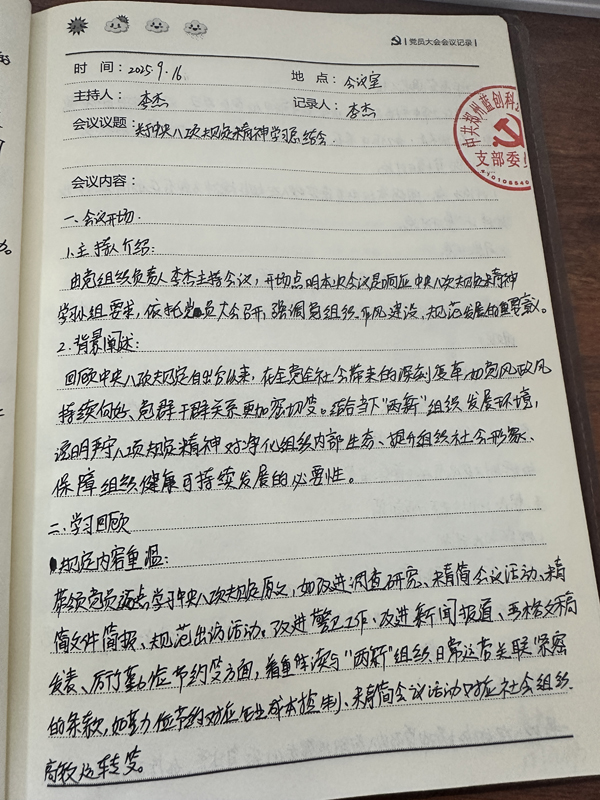 党员大会会议记录
时 间：2025.9.16 地 点：会议室
主持人：李杰 记录人：李杰
会议议题：关于中央八项规定精神学习总结会.
中共郑州蓝创科
支部委员
会议内容：
一、会议开场.
1.主持人介绍：
由党组织负责人李杰主持会议，开场点明本次会议是响应中央八项规定精神
学习组要求，依托党员大会召开，强调党组织作风建设、规范发展的重要意义。
2.背景阐述：
回顾中央八项规定自出台以来，在全党全社会带来的深刻变革，如党风政风
持续向好、党群干群关系更加密切等。结合当下"两新"组织发展环境，
说明严守八项规定精神对净化组织内部生态、提升组织社会形象、
保障组织健康可持续发展的必要性。
二、学习回顾
规定内容重温：
带领党员逐点学习中央八项规定原文，如改进调查研究、精简会议活动、精
简文件简报、规范出访活动。改进警卫工作、改进新闻报道、严格文稿
发表、厉行勤俭节约等方面，着重阵读与"两新"组织日常运营关联紧密
的条款，如勤俭节约对应企业成本控制、精简会议活动对应社会组织
高效运转等。